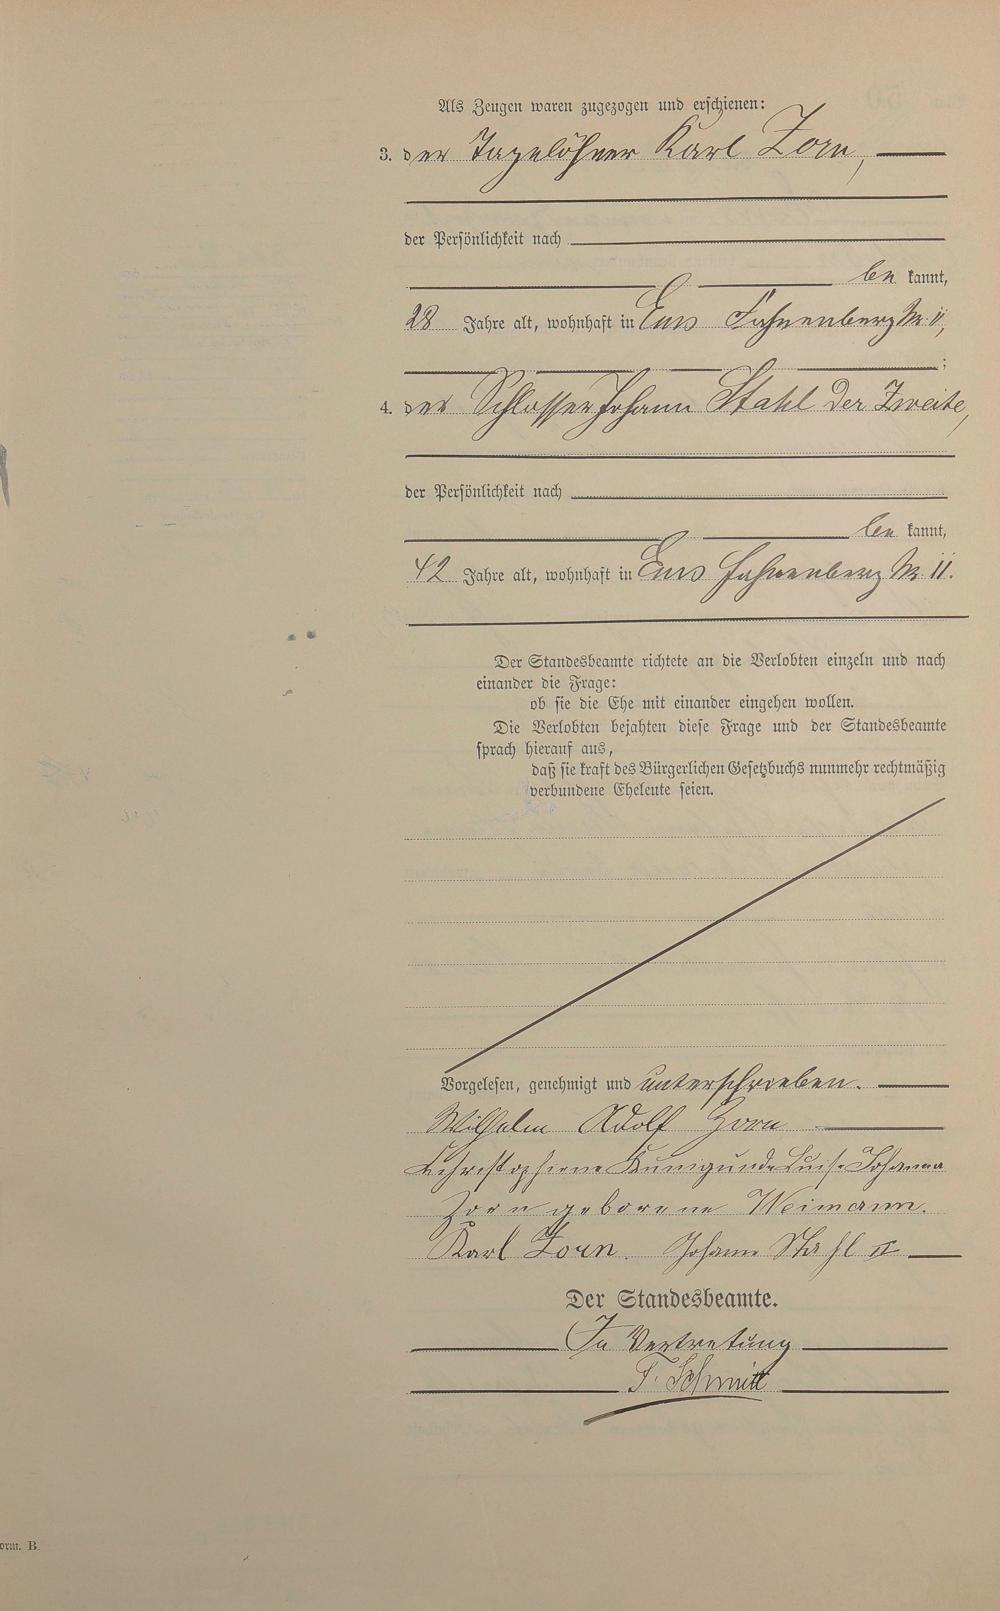 Als Zeugen waren zugezogen und erschienen:
3. der Tagelöhner Karl Zorn,
der Persönlichkeit nach
be kannt,
28 Jahre alt, wohnhaft in Ems Fahnenberg Nr. 11,
;
4. der Schlosser Johann Stahl der Zweite,
der Persönlichkeit nach
be kannt,
42 Jahre alt, wohnhaft in Ems Fahnenberg Nr. 11.
Der Standesbeamte richtete an die Verlobten einzeln und nach
einander die Frage:
ob sie die Ehe mit einander eingehen wollen.
Die Verlobten bejahten diese Frage und der Standesbeamte
sprach hierauf aus,
daß sie kraft des Bürgerlichen Gesetzbuchs nunmehr rechtmäßig
verbundene Eheleute seien.
Vorgelesen, genehmigt und unterschrieben.
Wilhelm Adolf Zorn
Christophiene Kunigunde Luise Johanna
Zorn geborene Weimann.
Karl Zorn. Johann Stahl II
Der Standesbeamte.
In Vertretung
F. Schmitt
orm. B.